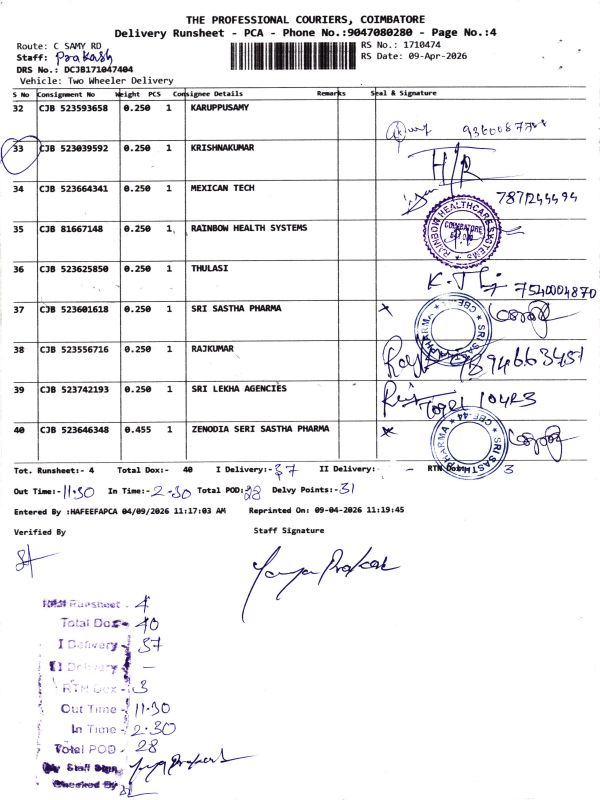 THE PROFESSIONAL COURIERS, COIMBATORE
Delivery Runsheet - PCA - Phone No.:9047080280 - Page No.:4
Route: C SAMY RD
RS No.: 1710474
Staff: Prakash
RS Date: 09-Apr-2026
DRS No.: DCJB171047404
Vehicle: Two Wheeler Delivery
S No Consignment No Weight PCS Consignee Details Remarks Seal & Signature
32 CJB 523593658 0.250 1 KARUPPUSAMY
33 CJB 523039592 0.250 1 KRISHNAKUMAR
34 CJB 523664341 0.250 1 MEXICAN TECH
35 CJB 81667148 0.250 1 RAINBOW HEALTH SYSTEMS
RAINBOW HEALTHCARE SYSTEMS
COIMBATORE
36 CJB 523625850 0.250 1 THULASI
7540004870
37 CJB 523601618 0.250 1 SRI SASTHA PHARMA
SRI SASTHA PHARMA CBE-44
38 CJB 523556716 0.250 1 RAJKUMAR
39 CJB 523742193 0.250 1 SRI LEKHA AGENCIES
40 CJB 523646348 0.455 1 ZENODIA SERI SASTHA PHARMA
SRI SASTHA PHARMA CBE-44
Tot. Runsheet:- 4 Total Dox:- 40 I Delivery:- 37 II Delivery:- - RTN Dox:- 3
Out Time:- 11.30 In Time:- 2.30 Total POD: 28 Delvy Points:- 31
Entered By :HAFEEFAPCA 04/09/2026 11:17:03 AM Reprinted On: 09-04-2026 11:19:45
Verified By Staff Signature
Runsheet - 4
Total Dox - 40
I Delivery - 37
II Delivery - -
RTN Dox - 3
Out Time - 11.30
In Time - 2.30
Total POD - 28
Staff Sign
Checked By